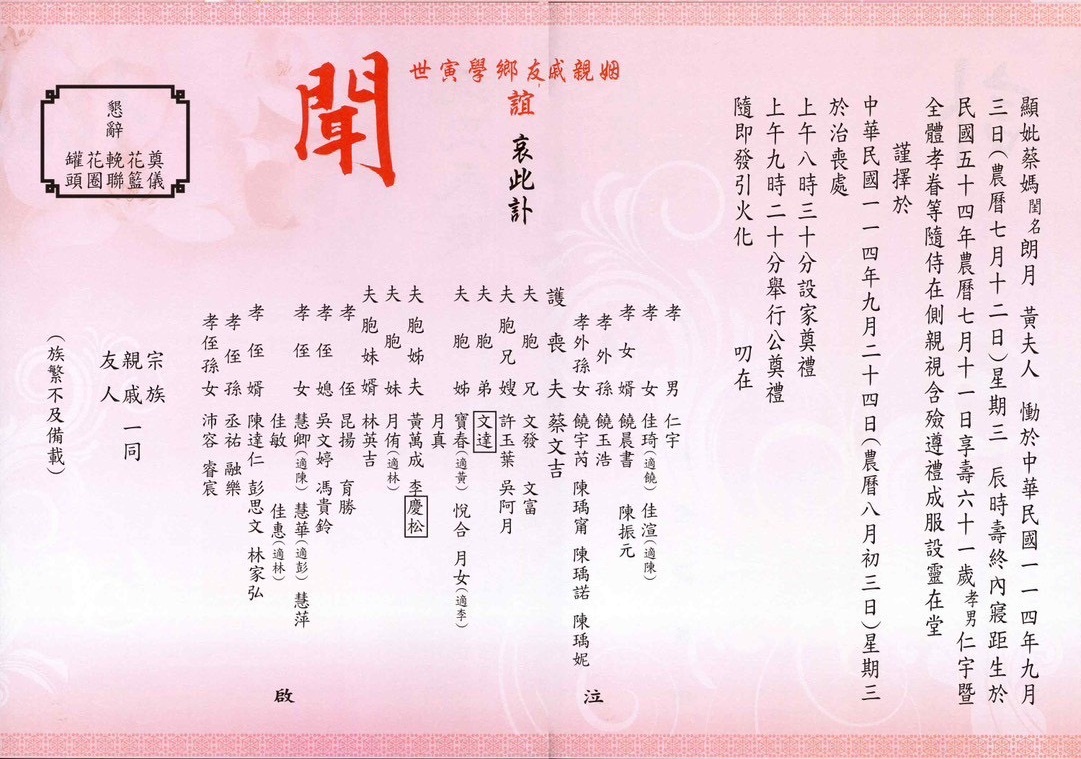 顯妣蔡媽閨名朗月 黃夫人 慟於中華民國一一四年九月
三日(農曆七月十二日)星期三 辰時壽終內寢距生於
民國五十四年農曆七月十一日享壽六十一歲孝男仁宇暨
全體孝眷等隨侍在側親視含殮遵禮成服設靈在堂
謹擇於
中華民國一一四年九月二十四日(農曆八月初三日)星期三
於治喪處
上午八時三十分設家奠禮
上午九時二十分舉行公奠禮
隨即發引火化 叨在
姻親戚友鄉學寅世
誼 哀此訃
聞
孝男 仁宇
孝女 佳琦(適饒) 佳渲(適陳)
孝女婿 饒晨書 陳振元
孝外孫 饒玉浩
孝外孫女 饒宇芮 陳瑀甯 陳瑀諾 陳瑀妮
護喪夫 蔡文吉
夫胞兄 文發 文富
夫胞兄嫂 許玉葉 吳阿月
夫胞弟 文達
夫胞姊 寶春(適黃) 悅合 月女(適李)
月真
夫胞姊夫 黃萬成 李慶松
夫胞妹 月侑(適林)
夫胞妹婿 林英吉
孝侄 昆揚 育勝
孝侄媳 吳文婷 馮貴鈴
孝侄女 慧卿(適陳) 慧華(適彭) 慧萍
佳敏 佳惠(適林)
孝侄婿 陳達仁 彭思文 林家弘
孝侄孫 丞祐 融樂
孝侄孫女 沛容 睿宸
泣
啟
宗族
親戚一同
友人
(族繁不及備載)
懇辭
奠儀
花籃
輓聯
花圈
罐頭